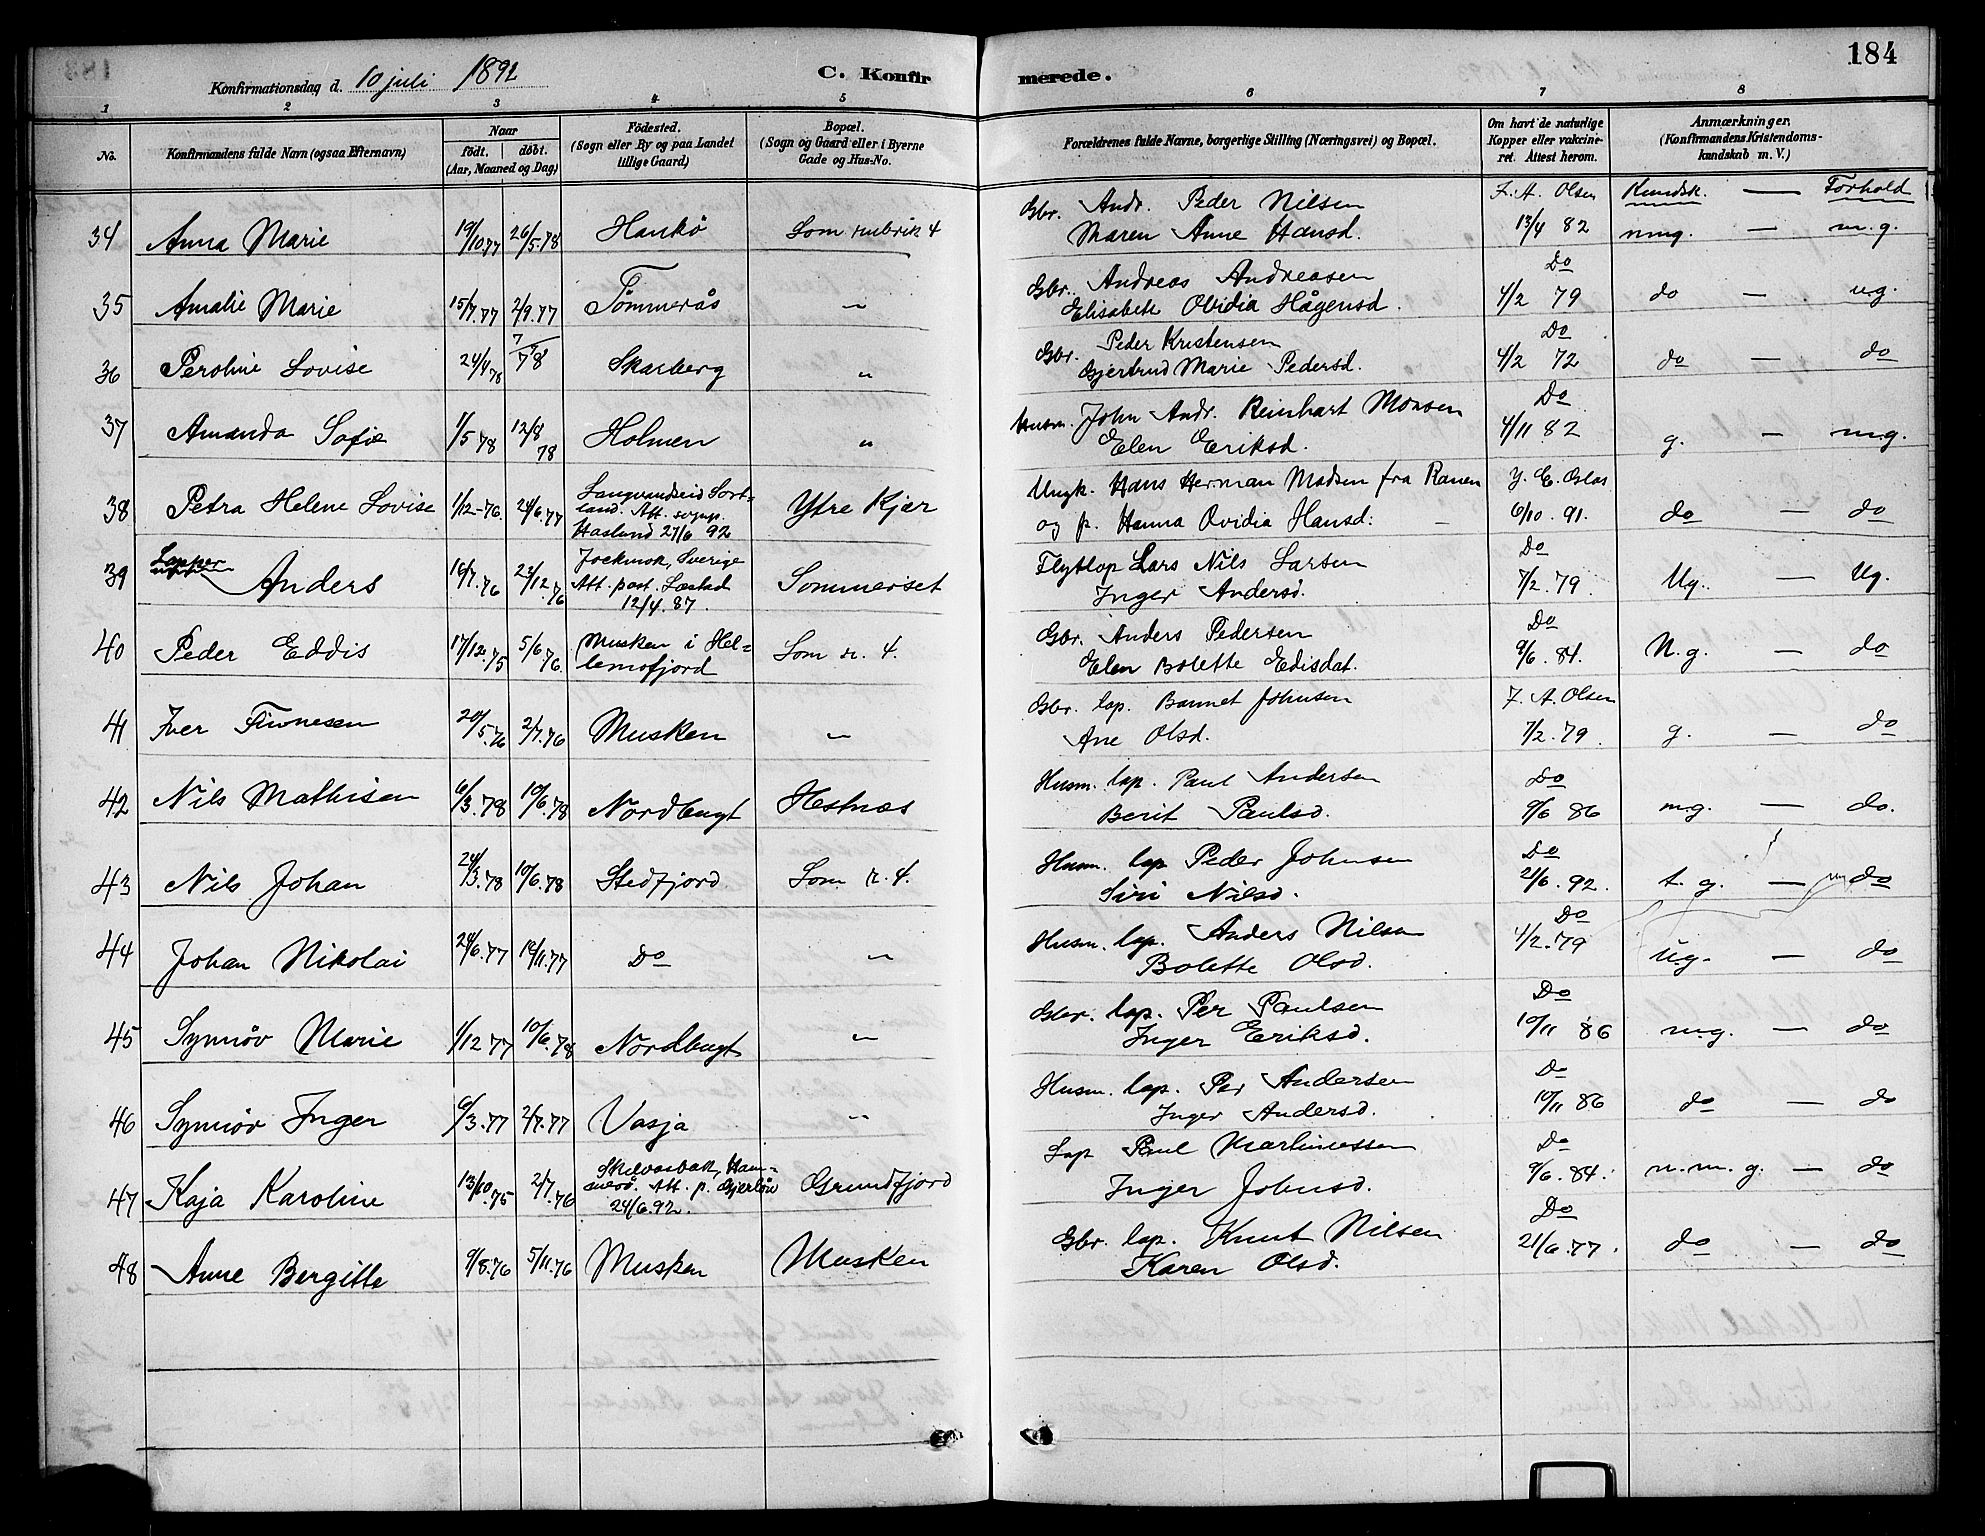 184
Konfirmationsdag d. 10 juli 1892
C. Konfir merede.
1 2 3 4 5 6 7 8
No.
Konfirmandens fulde Navn (ogsaa Efternavn)
Naar
født. døbt.
(Aar, Maaned og Dag)
Födested.
(Sogn eller By og paa Landet
tillige Gaard)
Bopæl.
(Sogn og Gaard eller i Byerne
Gade og Hus-No.
Forældrenes fulde Navne, borgerlige Stilling (Næringsvei) og Bopæl.
Om havt de naturlige
Kopper eller vakcine-
ret. Attest herom.
Anmærkninger,
(Konfirmandens Kristendoms-
kundskab m. V.)
Kundsk. — Forhold
34 Anna Marie 19/10 77 26/5.78 Hankö Som rubrik 4
Gbr. Andr. Peder Nilsen
Maren Anne Hansd.
F. A. Olsen
13/4 82 nmg. — m.g.
35 Amalie Marie 15/7.77 2/9.77 Tömmerås "
Gbr. Andreas Andreasen
Elisabeth Ovidia Hågensd.
Do
4/2 79 do — u.g.
36 Peroline Lovise 24/4 78 7/7 78 Skarberg "
Gbr. Peder Kristensen
Gjertrud Marie Pedersd.
Do
4/2 72 do — do
37 Amanda Sofie 1/5 78 12/8 78 Holmen "
Husm. John Andr. Reinhart Monsen
Elen Eriksd.
Do
4/11 82 g. — m.g.
38 Petra Helene Lovise 1/12-76. 24/6.77
Langvandseid Sort-
land. Att. sognp.
Haslund 27/6 92
Ytre Kjær
Ungk. Hans Herman Madsen fra Ranen
og p. Hanna Ovidia Hansd.
6/10. 91. do — do
39 Lapper Anders 16/7.76 23/12.76
Jockmok, Sverige
Att. past. Læstad
12/4.87.
Sommerset
Flytlap Lars Nils Larsen
Inger Andersd.
Do
7/2.79. Ug. — Ug.
40 Peder Eddis 17/12.75 5/6.76
Musken i Hel-
lemofjord
Som r. 4.
Gbr. Anders Pedersen
Elen Bolette Edisdat.
Do
9/6.84. N.g. — do
41 Iver Finnesen 20/5.76 2/7.76 Musken "
Gbr. lap. Bannet Johnsen
Ane Olsd.
F. A. Olsen
7/2.79. g. — do
42 Nils Mathisen 6/3.78 10/6.78 Nordbugt Hestnæs
Husm. lap. Paul Andersen
Berit Paulsd.
Do
9/6 86 m.g. — do.
43 Nils Johan 24/3.78 10/6.78 Stedfjord Som r. 4.
Husm. lap. Peder Johnsen
Siri Nilsd.
Do
21/6. 92. t. g. — do
44 Johan Nikolai 24/6.77 18/11.77 Do "
Husm. lap. Anders Nilsen
Bolette Olsd.
Do
4/2.79 ug. — do
45 Synnöv Marie 1/12 77 10/6.78 Nordbugt "
Gbr. lap. Per Paulsen
Inger Eriksd.
Do
10/11 86 m.g. — do
46 Synnöv Inger 6/3.77 2/7.77 Vasja "
Husm. lap. Per Andersen
Inger Andersd.
Do
10/11 86 do — do
47 Kaja Karoline 13/10.75 2/7.76
Skelvasbak, Ham-
merö. Att. p. Gjerlöw
24/6.92.
Grundfjord
Lap Paul Martinussen
Inger Johnsd.
Do
9/6. 84. n.m.g. — do
48 Anne Bergitte 9/8.76 5/11.76 Musken Musken
Gbr. lap. Knut Nilsen
Karen Olsd.
Do
21/6.77. do — do